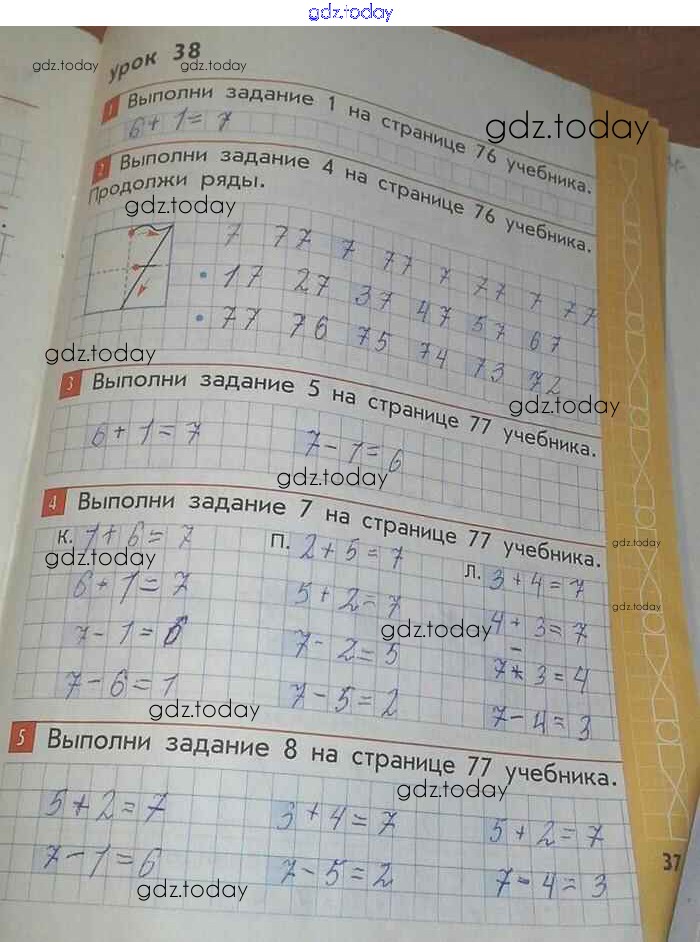 gdz.today
урок 38
gdz.today gdz.today
1 Выполни задание 1 на странице 76 учебника.
6 + 1 = 7
gdz.today
2 Выполни задание 4 на странице 76 учебника.
Продолжи ряды.
gdz.today
7 77 7 77 7 77 7 77
17 27 37 47 57 67
77 76 75 74 73 72
gdz.today
3 Выполни задание 5 на странице 77 учебника.
gdz.today
6 + 1 = 7 7 - 1 = 6
gdz.today
4 Выполни задание 7 на странице 77 учебника.
К. 1 + 6 = 7 П. 2 + 5 = 7 Л. 3 + 4 = 7
gdz.today gdz.today
6 + 1 = 7 5 + 2 = 7 4 + 3 = 7
gdz.today gdz.today
7 - 1 = 6 7 - 2 = 5 7 - 3 = 4
7 - 6 = 1 7 - 5 = 2 7 - 4 = 3
gdz.today
5 Выполни задание 8 на странице 77 учебника.
gdz.today
5 + 2 = 7 3 + 4 = 7 5 + 2 = 7
7 - 1 = 6 7 - 5 = 2 7 - 4 = 3
gdz.today
37